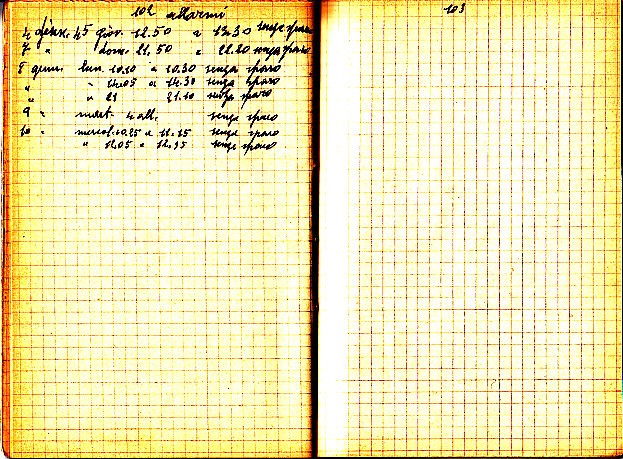 102 allarmi
4 genn. 45 giov. 12.50 a 13.30 senza sparo
7 " dom. 21.50 a 22.20 senza sparo
8 genn. lun. 10.10 a 10.30 senza sparo
" " 14.05 a 14.30 senza sparo
" " 21 21.10 senza sparo
9 " mart. 4 all. senza sparo
10 " mercol. 10.25 a 11.15 senza sparo
" 12.05 a 12.15 senza sparo
103